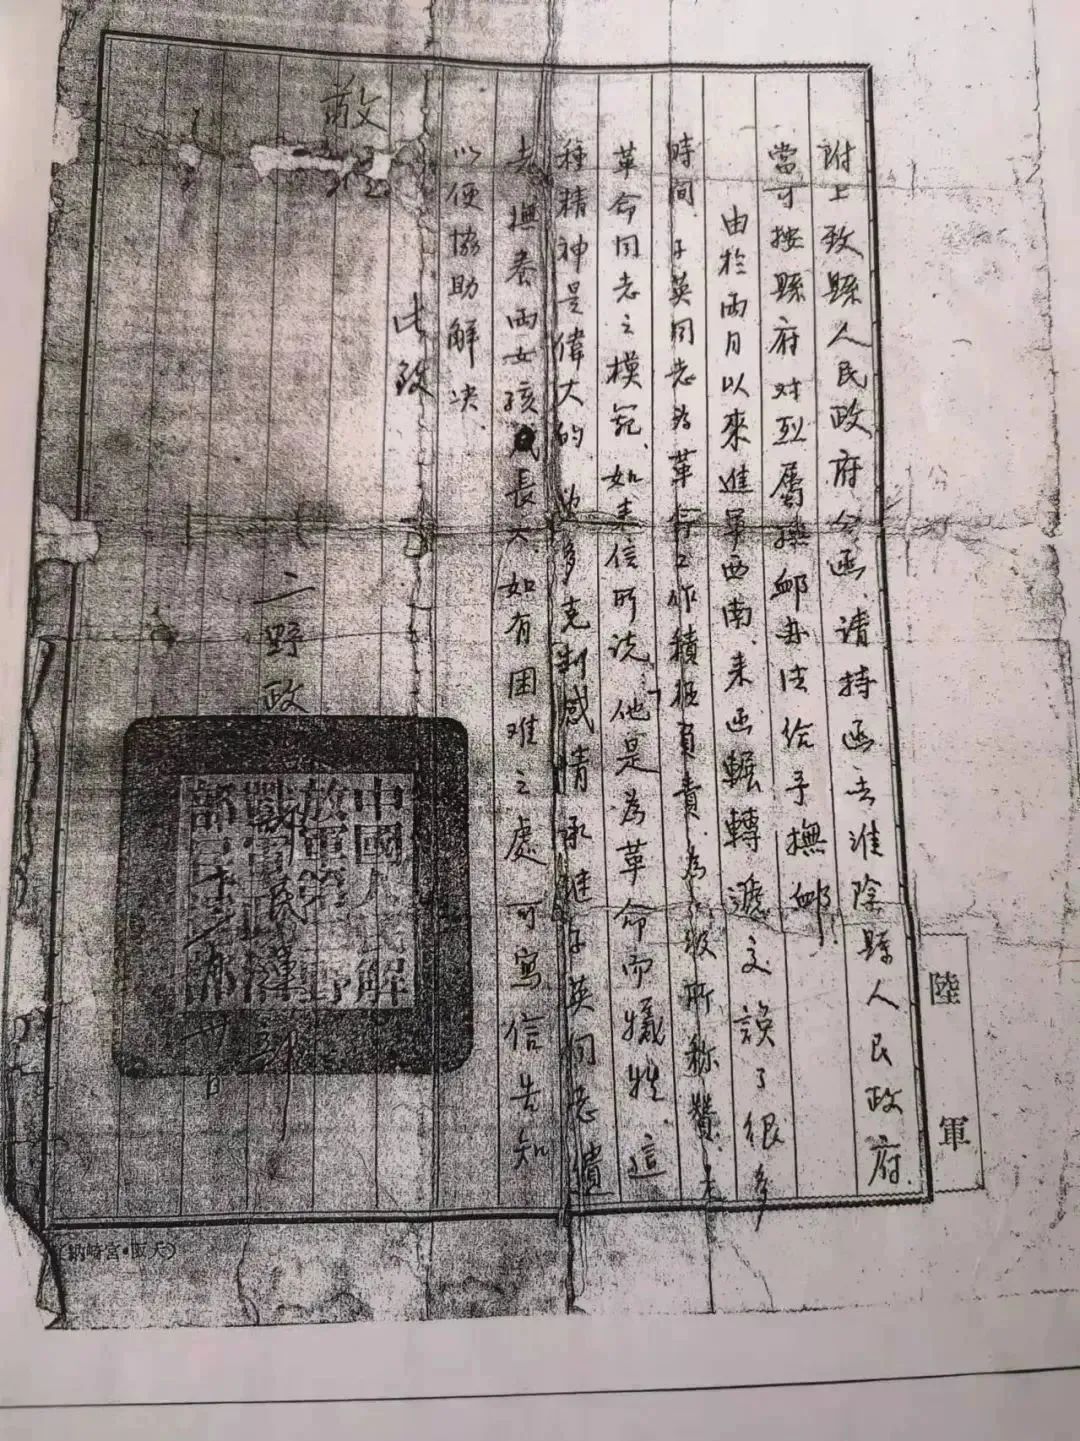 附上致縣人民政府公函、请持函去淮陰縣人民政府.
當可按縣府对烈屬撫卹办法给予撫卹.
由於兩月以來進軍西南、来函輾轉遞交誤了很多
時间.子英同志为革命工作積极負責.為
所称贊.
革命同志之模范.如来信所说,「他是為革命而犧牲這
種精神是偉大的.望多克制感情承继子英同志遺
志撫养兩女孩成長大.如有困难之處可寫信告知
以便協助解决.
此致
敬
二野政
民運部
廿日
中國人民解
放軍第
野
戰軍
部
陸軍